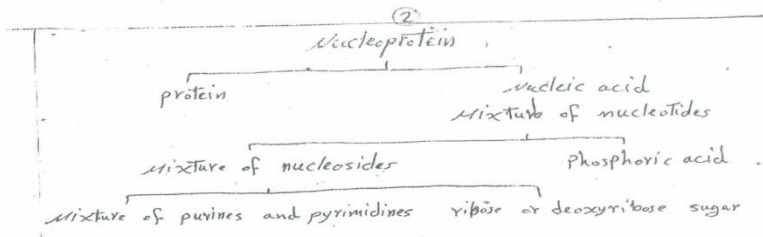 2
Nucleoprotein
protein Nucleic acid
Mixture of nucleotides
Mixture of nucleosides phosphoric acid
Mixture of purines and pyrimidines ribose or deoxyribose sugar